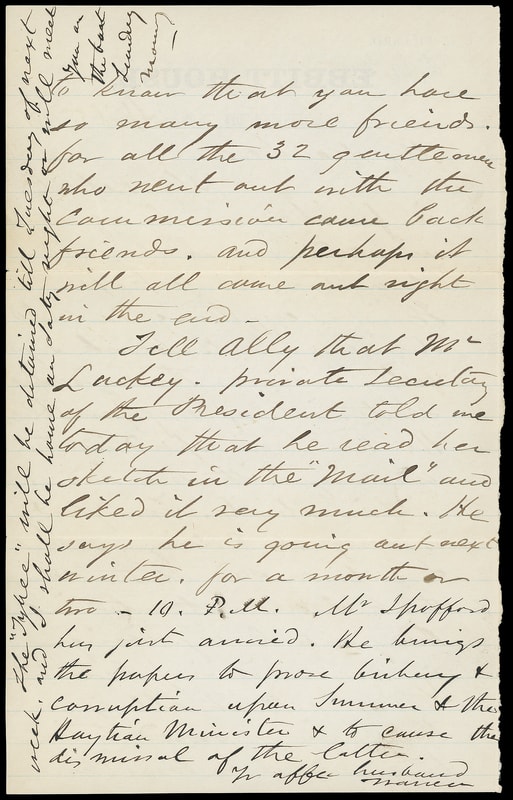 to know that you have
so many more friends.
for all the 32 gentlemen
who went out with the
Commission came back
friends. and perhaps it
will all come out right
in the end -
Tell Ally that Mr
Luckey. private Secretary
of the President told me
today that he read her
sketch in the "Mail" and
liked it very much. He
says he is going out next
winter. for a month or
two - 10. P.M. Mr Spofford
has just arrived. He brings
the papers to prove bribery &
corruption upon Sumner & the
Haytian Minister & to cause the
dismissal of the latter.
Yr affec husband
The "Tybee" will be detained till Tuesday of next
week. and I shall be home on Saty night or will meet
you on
the boat
Sunday
morng -